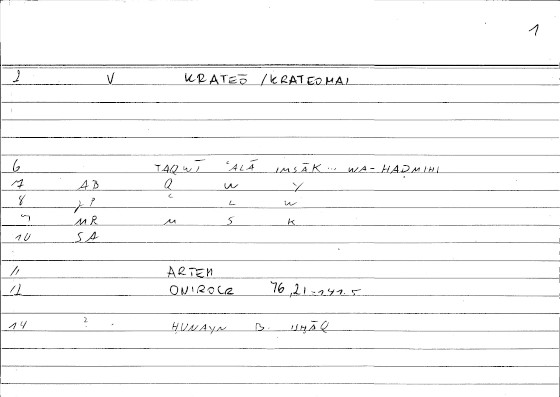 1
2 V KRATEŌ / KRATEOMAI
6 TAQWĪ ʿALĀ IMSĀK... WA-HAḌMIHI
7 AB Q W Y
8 PP ʿ L W
9 MR M S K
10 SA
11 ARTEM
12 ONIROCR 76,21 - 141.5
14 ? . HUNAYN B. ISḤĀQ